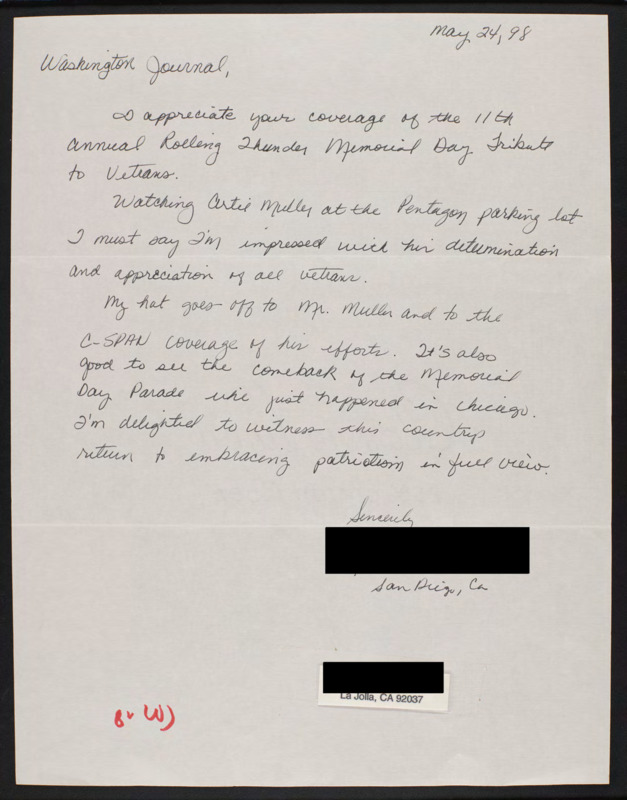 May 24, 98
Washington Journal,
I appreciate your coverage of the 11th
annual Rolling Thunder Memorial Day Tribute
to Vetrans.
Watching Artie Muller at the Pentagon parking lot
I must say I'm impressed with his determination
and appreciation of all vetrans.
My hat goes off to Mr. Muller and to the
C-SPAN coverage of his efforts. It's also
good to see the comeback of the Memorial
Day Parade like just happened in Chicago.
I'm delighted to witness this country
return to embracing patriotism in full view.
Sincerely
San Diego, Ca
La Jolla, CA 92037